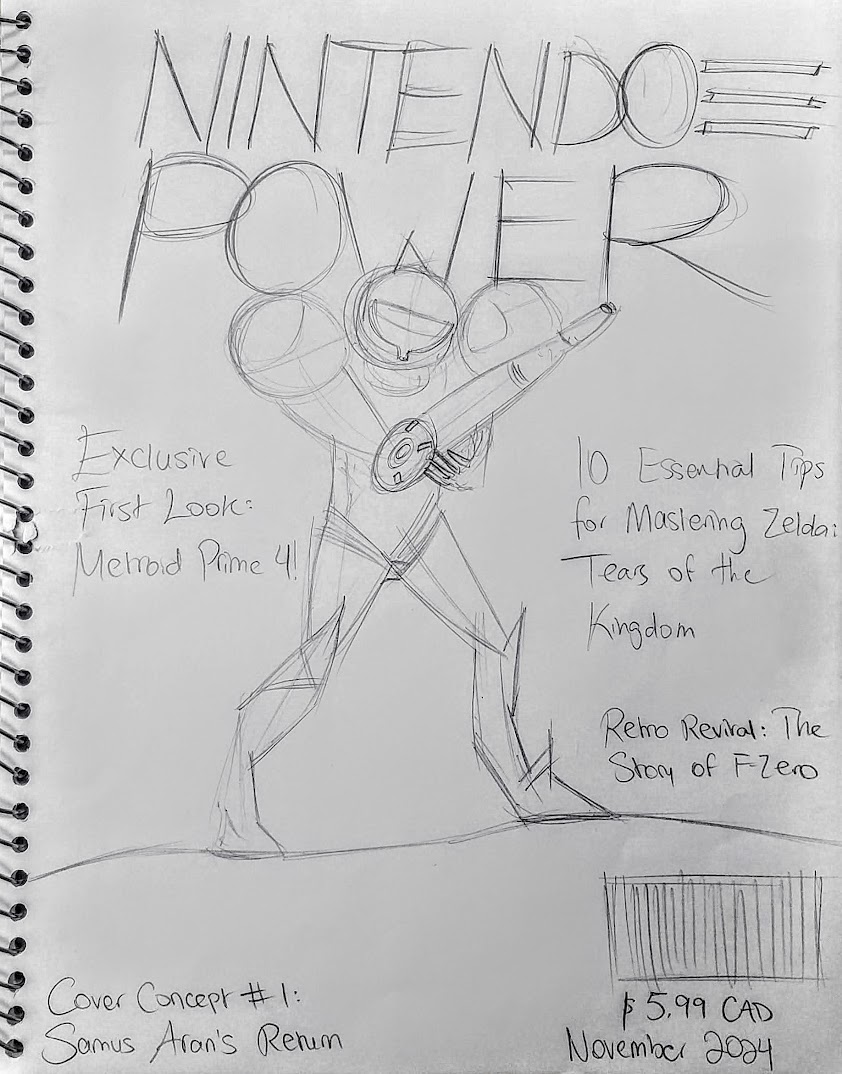 NINTENDO
POWER
Exclusive
First Look:
Metroid Prime 4!
10 Essential Tips
for Mastering Zelda:
Tears of the
Kingdom
Retro Revival: The
Story of F-Zero
Cover Concept #1:
Samus Aran's Return
$5.99 CAD
November 2024